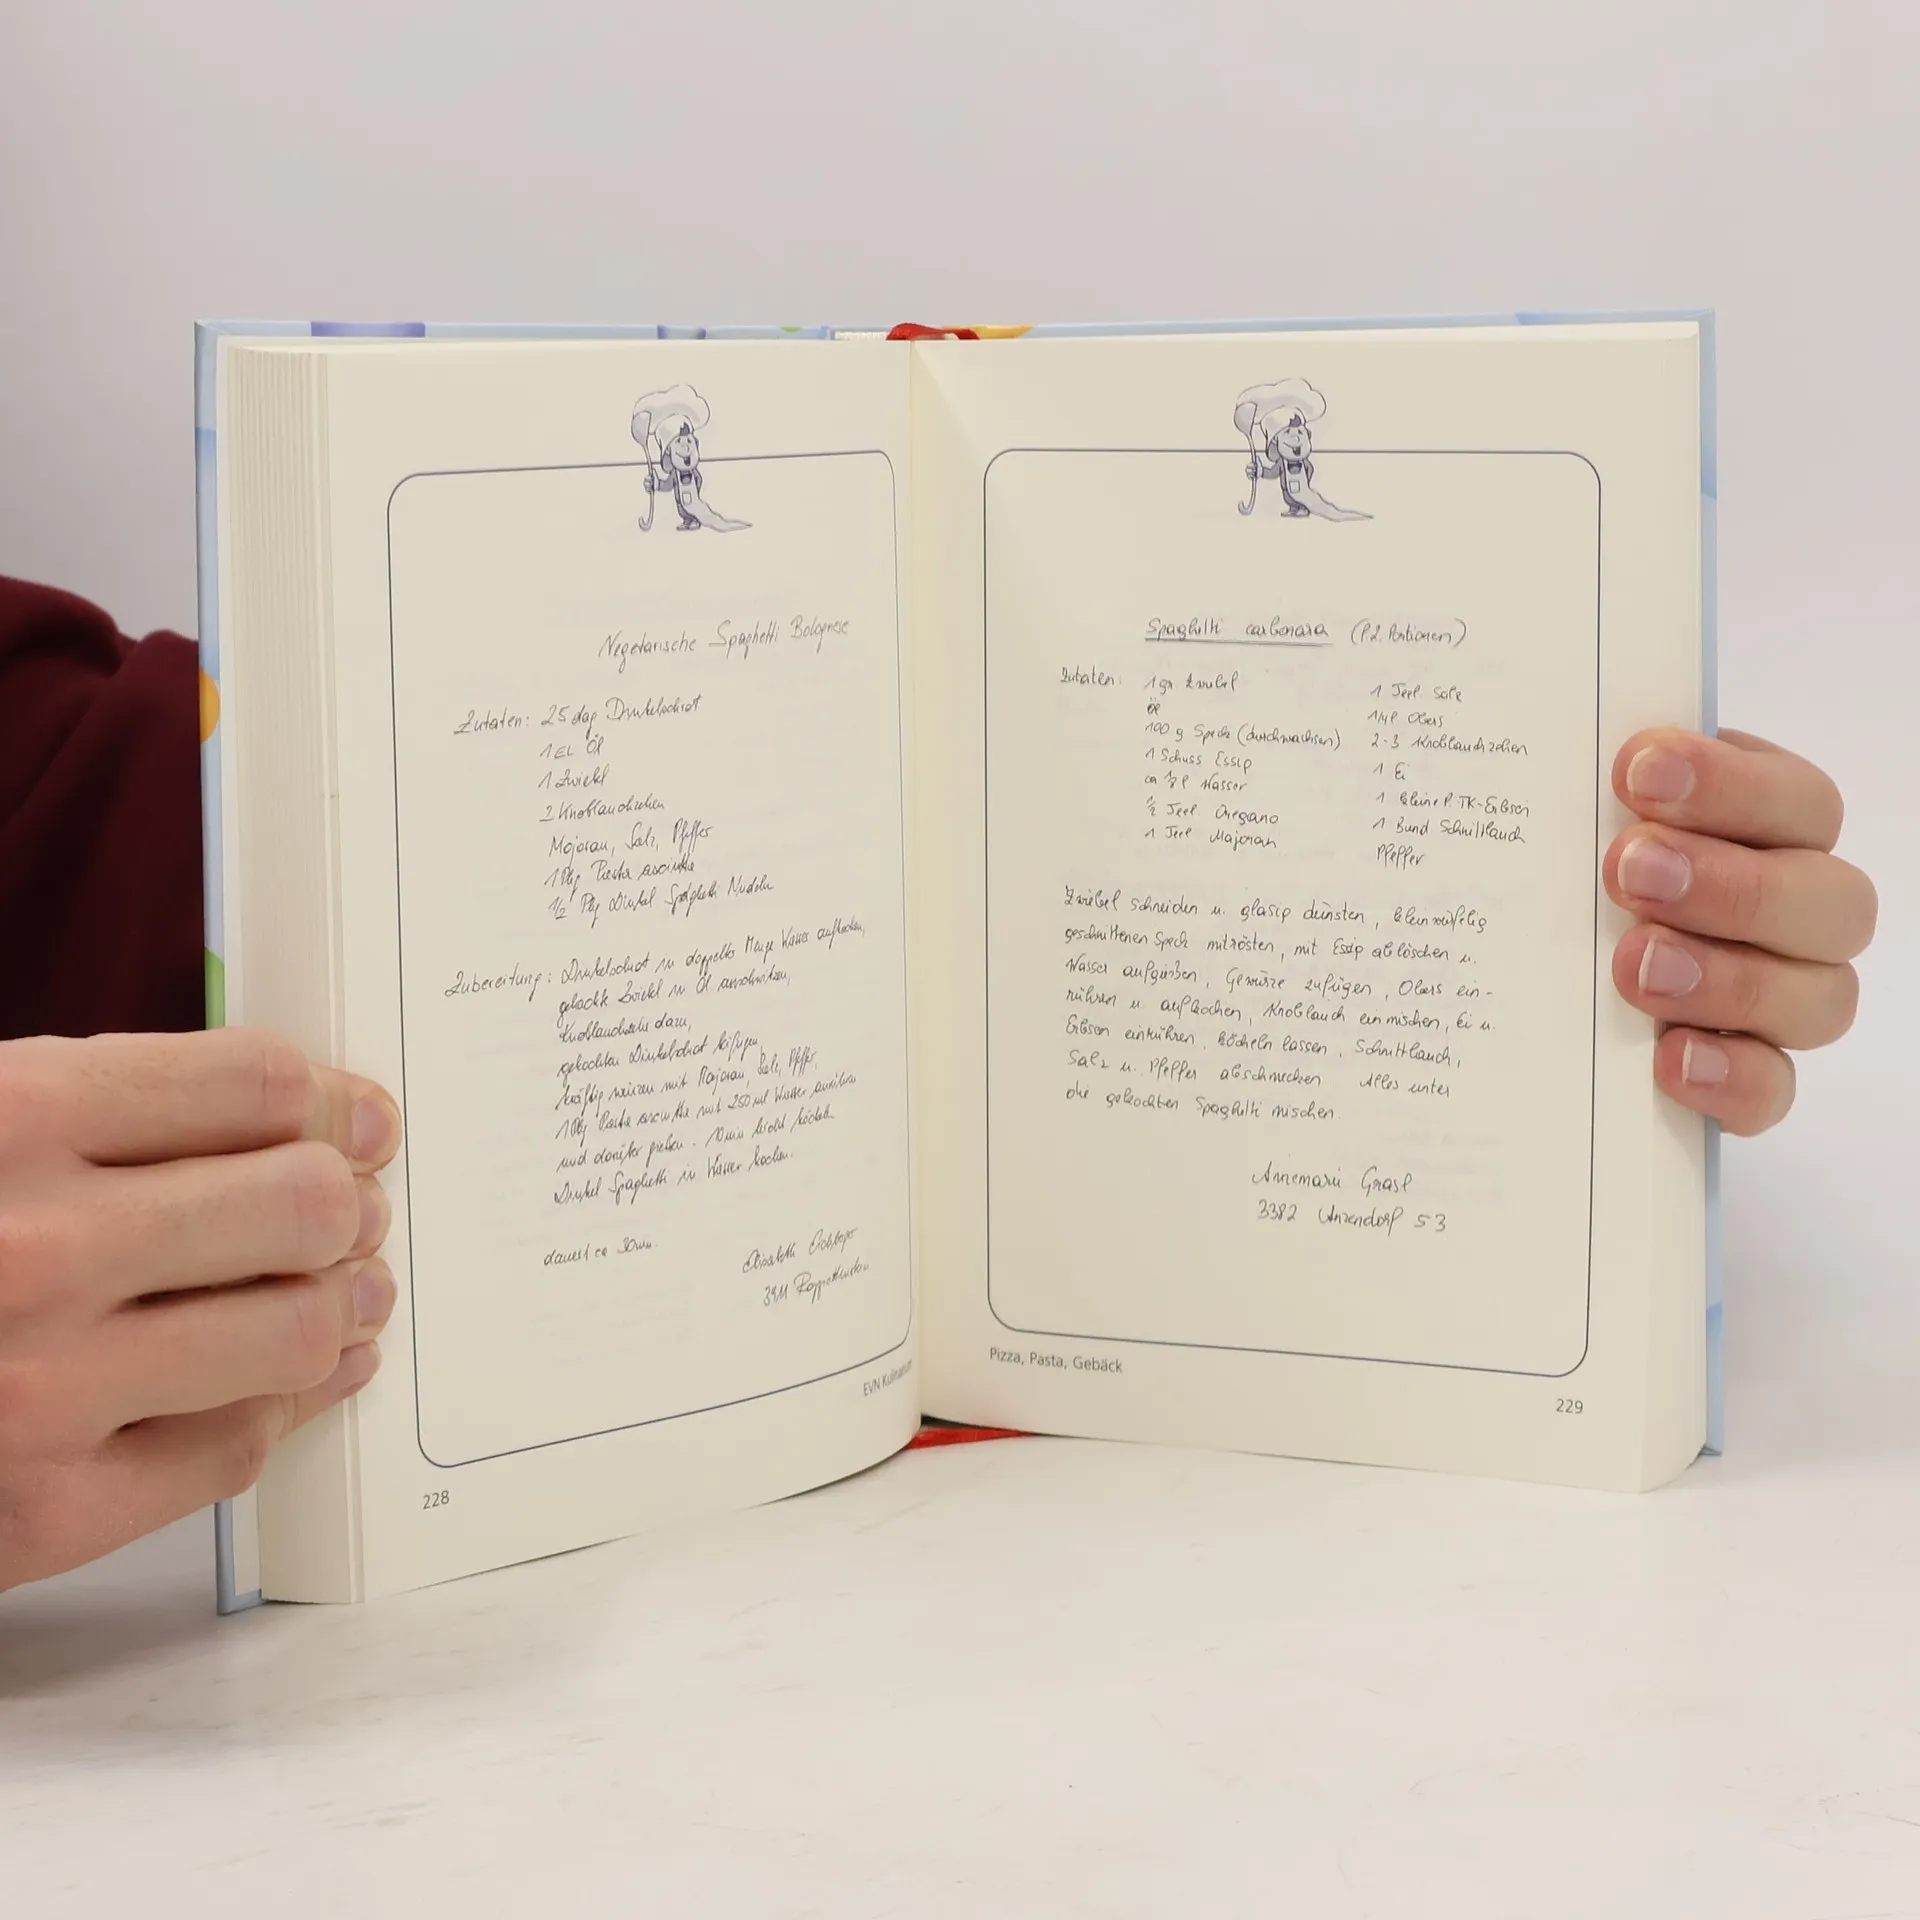 Vegetarische Spaghetti Bolognese
Zutaten: 25 dag Dinkelschrot
1 EL Öl
1 Zwiebel
2 Knoblauchzehen
Majoran, Salz, Pfeffer
1 Pkg Pasta asciutta
1/2 Pkg Dinkel Spaghetti Nudeln
Zubereitung: Dinkelschrot in doppelter Menge Wasser aufkochen,
gehackte Zwiebel in Öl anschwitzen,
Knoblauchzehe dazu,
gekochten Dinkelschrot beifügen,
kräftig würzen mit Majoran, Salz, Pfeffer,
1 Pkg Pasta asciutta mit 250 ml Wasser
und darüber gießen - 10 min leicht köcheln
Dinkel Spaghetti in Wasser kochen.
dauert ca 30 min.
Elisabeth
3911 Rappottenstein
EVN Kulinarium
228
Spaghetti carbonara (f. 2. Portionen)
Zutaten: 1 gr Zwiebel
Öl
100 g Speck (durchwachsen)
1 Schuss Essig
ca 1/8 l Wasser
1/2 Teel Oregano
1 Teel Majoran
1 Teel Salz
1/4 l Obers
2-3 Knoblauchzehen
1 Ei
1 kleine P. TK-Erbsen
1 Bund Schnittlauch
Pfeffer
Zwiebel schneiden u. glasig dünsten, kleinwürfelig
geschnittenen Speck mitrösten, mit Essig ablöschen u.
Wasser aufgießen, Gewürze zufügen, Obers ein-
rühren u. aufkochen, Knoblauch einmischen, Ei u.
Erbsen einrühren, köcheln lassen, Schnittlauch,
Salz u. Pfeffer abschmecken Alles unter
die gekochten Spaghetti mischen.
Annemarie Grasl
3382 Anzendorf 53
Pizza, Pasta, Gebäck
229